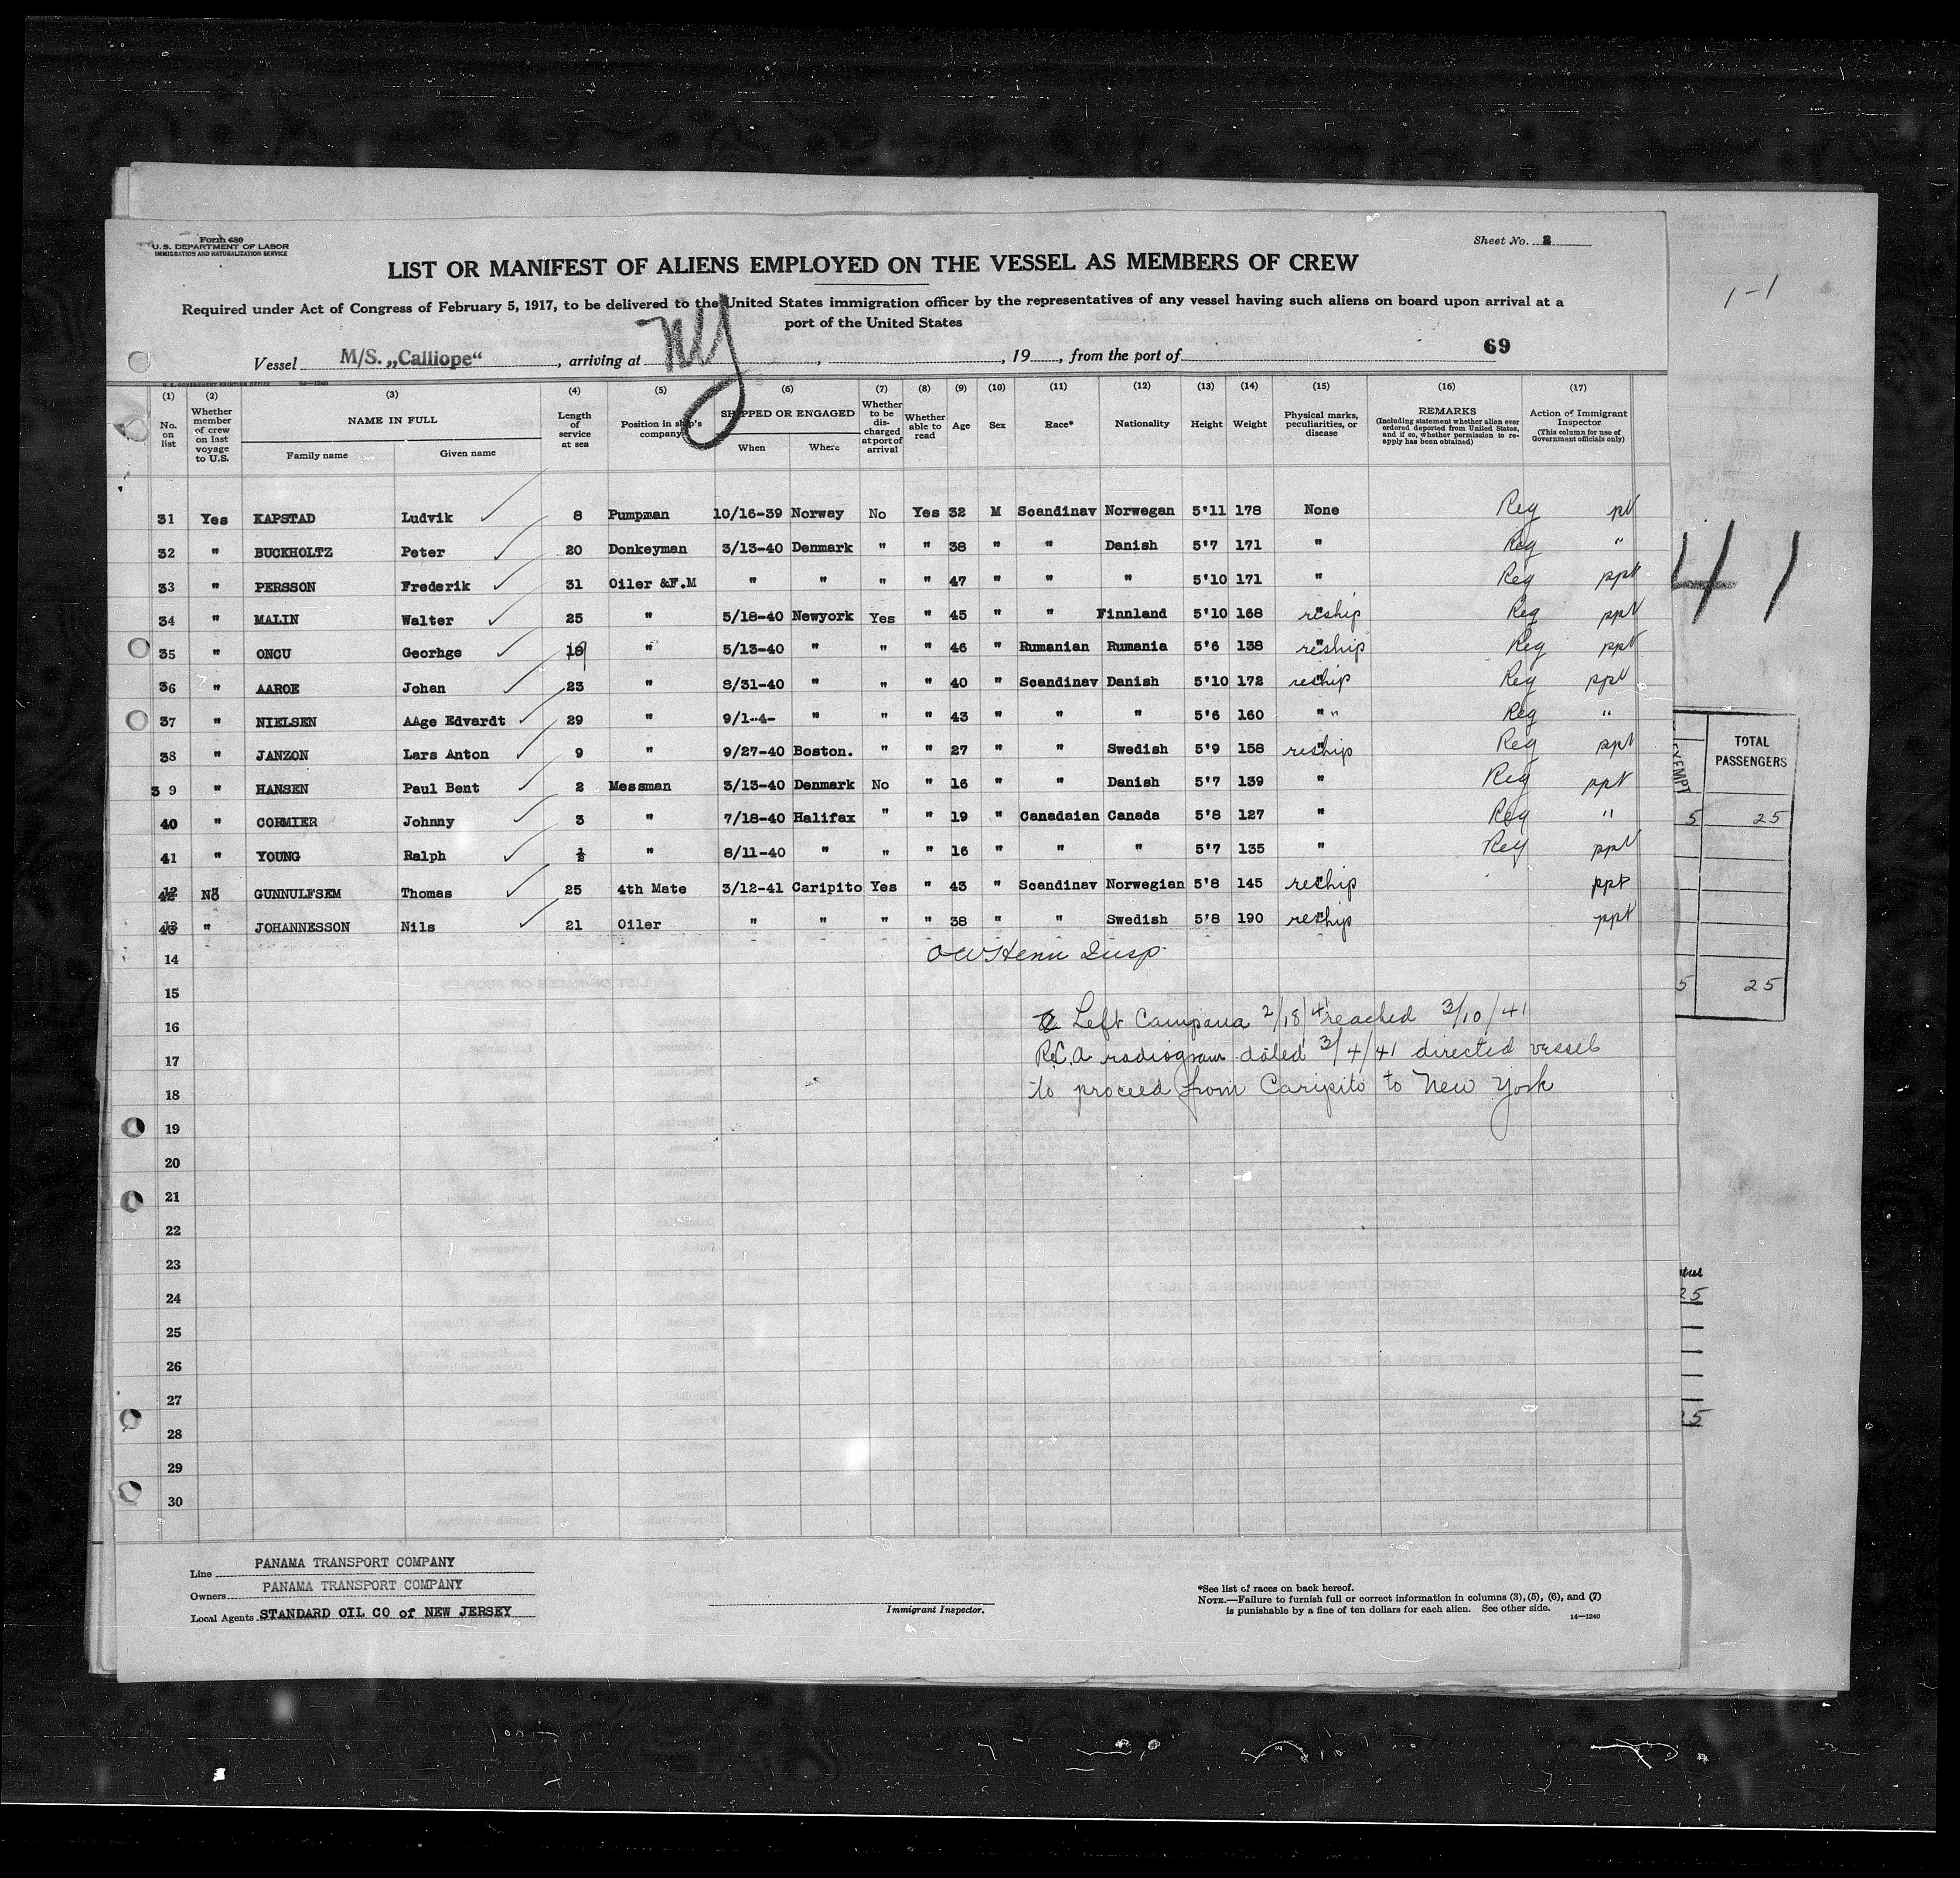 Form 680
U.S. DEPARTMENT OF LABOR
IMMIGRATION AND NATURALIZATION SERVICE
Sheet No. 2
LIST OR MANIFEST OF ALIENS EMPLOYED ON THE VESSEL AS MEMBERS OF CREW
Required under Act of Congress of February 5, 1917, to be delivered to the United States immigration officer by the representatives of any vessel having such aliens on board upon arrival at a
port of the United States
1-1
69
Vessel M/S. „Calliope“, arriving at NY, , 19 , from the port of
U.S. GOVERNMENT PRINTING OFFICE 14-1240
(1) (2) (3) (4) (5) (6) (7) (8) (9) (10) (11) (12) (13) (14) (15) (16) (17)
No. on list
Whether member of crew on last voyage to U.S.
NAME IN FULL
Family name Given name
Length of service at sea
Position in ship's company
SHIPPED OR ENGAGED
When Where
Whether to be discharged at port of arrival
Whether able to read
Age
Sex
Race*
Nationality
Height
Weight
Physical marks, peculiarities, or disease
REMARKS
(Including statement whether alien ever ordered deported from United States, and if so, whether permission to re-apply has been obtained)
Action of Immigrant Inspector
(This column for use of Government officials only)
31 Yes KAPSTAD Ludvik 8 Pumpman 10/16-39 Norway No Yes 32 M Scandinav Norwegan 5'11 178 None Reg pt
32 " BUCKHOLTZ Peter 20 Donkeyman 3/13-40 Denmark " " 38 " " Danish 5'7 171 " Reg "
33 " PERSSON Frederik 31 Oiler &F.M " " " " 47 " " " 5'10 171 " Reg ppt
34 " MALIN Walter 25 " 5/18-40 Newyork Yes " 45 " " Finnland 5'10 168 " reship Reg ppt
35 " ONCU Georhge 19 " 5/13-40 " " " 46 " Rumanian Rumania 5'6 138 " reship Reg ppt
36 " AAROE Johan 23 " 8/31-40 " " " 40 " Scandinav Danish 5'10 172 " reship Reg ppt
37 " NIELSEN AAge Edvardt 29 " 9/1-4- " " " 43 " " " 5'6 160 " " Reg "
38 " JANZON Lars Anton 9 " 9/27-40 Boston. " " 27 " " Swedish 5'9 158 " reship Reg ppt
3 9 " HANSEN Paul Bent 2 Messman 3/13-40 Denmark No " 16 " " Danish 5'7 139 " Reg ppt
40 " CORMIER Johnny 3 " 7/18-40 Halifax " " 19 " Canadaian Canada 5'8 127 " Reg "
41 " YOUNG Ralph ½ " 8/11-40 " " " 16 " " " 5'7 135 " Reg ppt
42 No GUNNULFSEM Thomas 25 4th Mate 3/12-41 Caripito Yes " 43 " Scandinav Norwegian 5'8 145 " reship ppt
43 " JOHANNESSON Nils 21 Oiler " " " " 38 " " Swedish 5'8 190 " reship ppt
14
15
16 Left Campana 2/18/41 reached 3/10/41
17 R.C.A radiogram dated 3/4/41 directed vessel
18 to proceed from Caripito to New York
19
20
21
22
23
24
25
26
27
28
29
30
41
EXEMPT
TOTAL PASSENGERS
5 25
5 25
25
Line PANAMA TRANSPORT COMPANY
Owners PANAMA TRANSPORT COMPANY
Local Agents STANDARD OIL CO of NEW JERSEY
Immigrant Inspector.
*See list of races on back hereof.
NOTE.—Failure to furnish full or correct information in columns (3), (5), (6), and (7)
is punishable by a fine of ten dollars for each alien. See other side.
14—1240